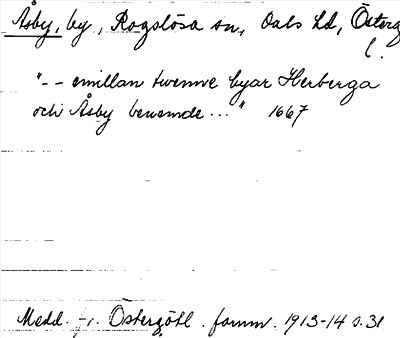 Åsby, by, Rogslösa sn, Dals hd, Österg
l.
"-- emillan twenne byar Herberga
och Åsby benemde..." 1667
Medd. fr. Östergötl. fornm. 1913-14 s. 31